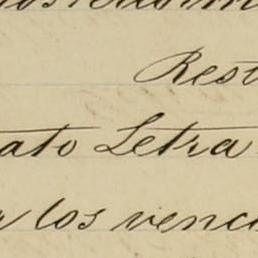 Rest
ato Letra
los venc